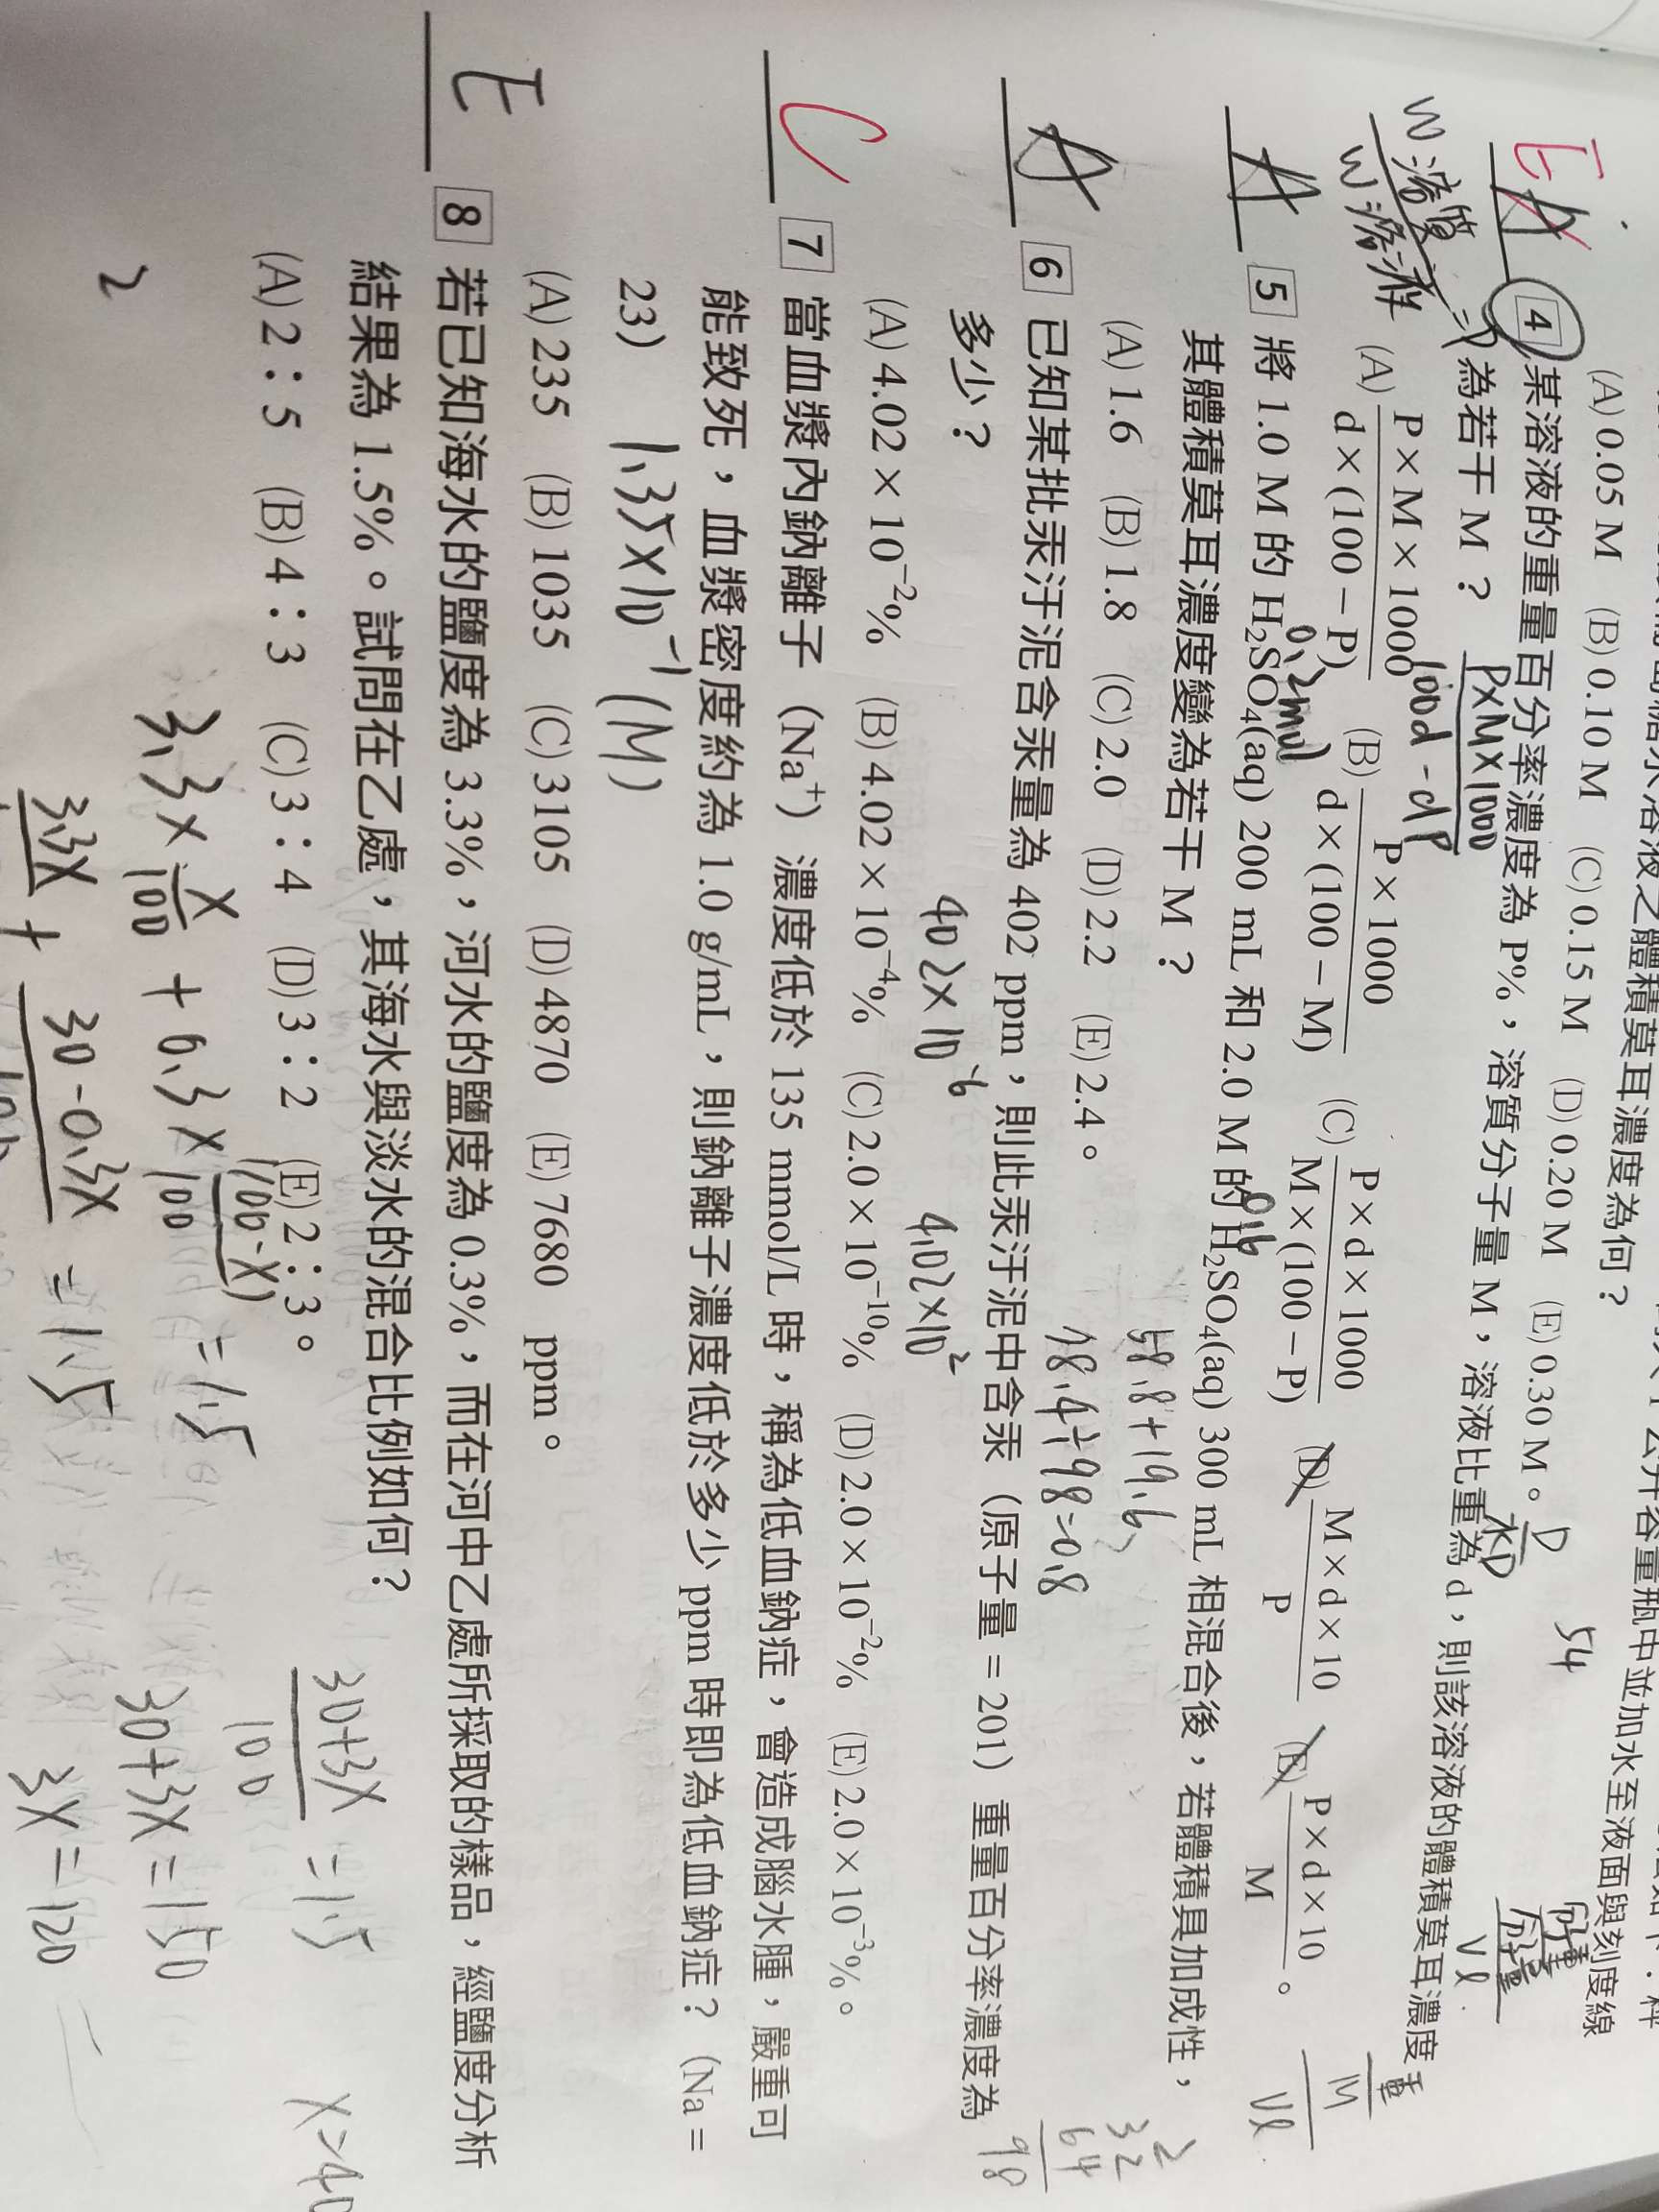 (A) 0.05 M (B) 0.10 M (C) 0.15 M (D) 0.20 M (E) 0.30 M。
E
A
4 某溶液的重量百分率濃度為 P%,溶質分子量 M,溶液比重為 d,則該溶液的體積莫耳濃度
為若干 M?
(A) P×M×1000 / d×(100−P) (B) P×1000 / d×(100−M) (C) P×d×1000 / M×(100−P) (D) M×d×10 / P (E) P×d×10 / M。
W溶質
W溶液
P×M×1000
100d-dP
54
Vl
A
5 將 1.0 M 的 H₂SO₄(aq) 200 mL 和 2.0 M 的 H₂SO₄(aq) 300 mL 相混合後,若體積具加成性,
其體積莫耳濃度變為若干 M?
(A) 1.6 (B) 1.8 (C) 2.0 (D) 2.2 (E) 2.4。
0.2mol
0.6
58.8+19.6
78.4÷98=0.8
2
32
64
98
A
6 已知某批汞汙泥含汞量為 402 ppm,則此汞汙泥中含汞(原子量 = 201)重量百分率濃度為
多少?
(A) 4.02×10⁻²% (B) 4.02×10⁻⁴% (C) 2.0×10⁻¹⁰% (D) 2.0×10⁻²% (E) 2.0×10⁻³%。
402×10⁻⁶
4.02×10²
C
7 當血漿內鈉離子(Na⁺)濃度低於 135 mmol/L 時,稱為低血鈉症,會造成腦水腫,嚴重可
能致死,血漿密度約為 1.0 g/mL,則鈉離子濃度低於多少 ppm 時即為低血鈉症?(Na =
23)
1.35×10⁻¹(M)
(A) 235 (B) 1035 (C) 3105 (D) 4870 (E) 7680 ppm。
E
8 若已知海水的鹽度為 3.3%,河水的鹽度為 0.3%,而在河中乙處所採取的樣品,經鹽度分析
結果為 1.5%。試問在乙處,其海水與淡水的混合比例如何?
(A) 2:5 (B) 4:3 (C) 3:4 (D) 3:2 (E) 2:3。
3.3× X/100 + 0.3× (100-X)/100 = 1.5
3.3X + 30-0.3X = 1.5
30+3X/100 = 1.5
30+3X=150
3X=120
X=40